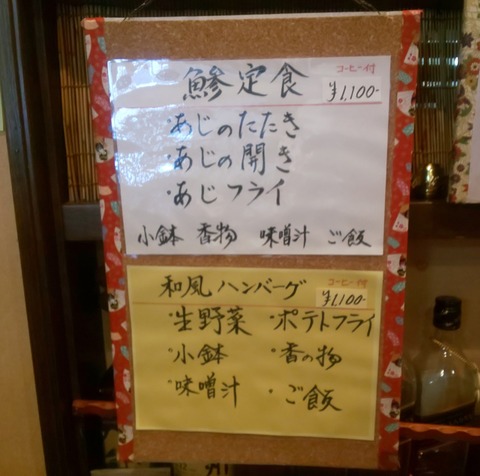 鯵定食
コーヒー付
¥1,100-
・あじのたたき
・あじの開き
・あじフライ
小鉢 香物 味噌汁 ご飯
和風ハンバーグ
コーヒー付
¥1,100-
・生野菜 ・ポテトフライ
・小鉢 ・香の物
・味噌汁 ・ご飯